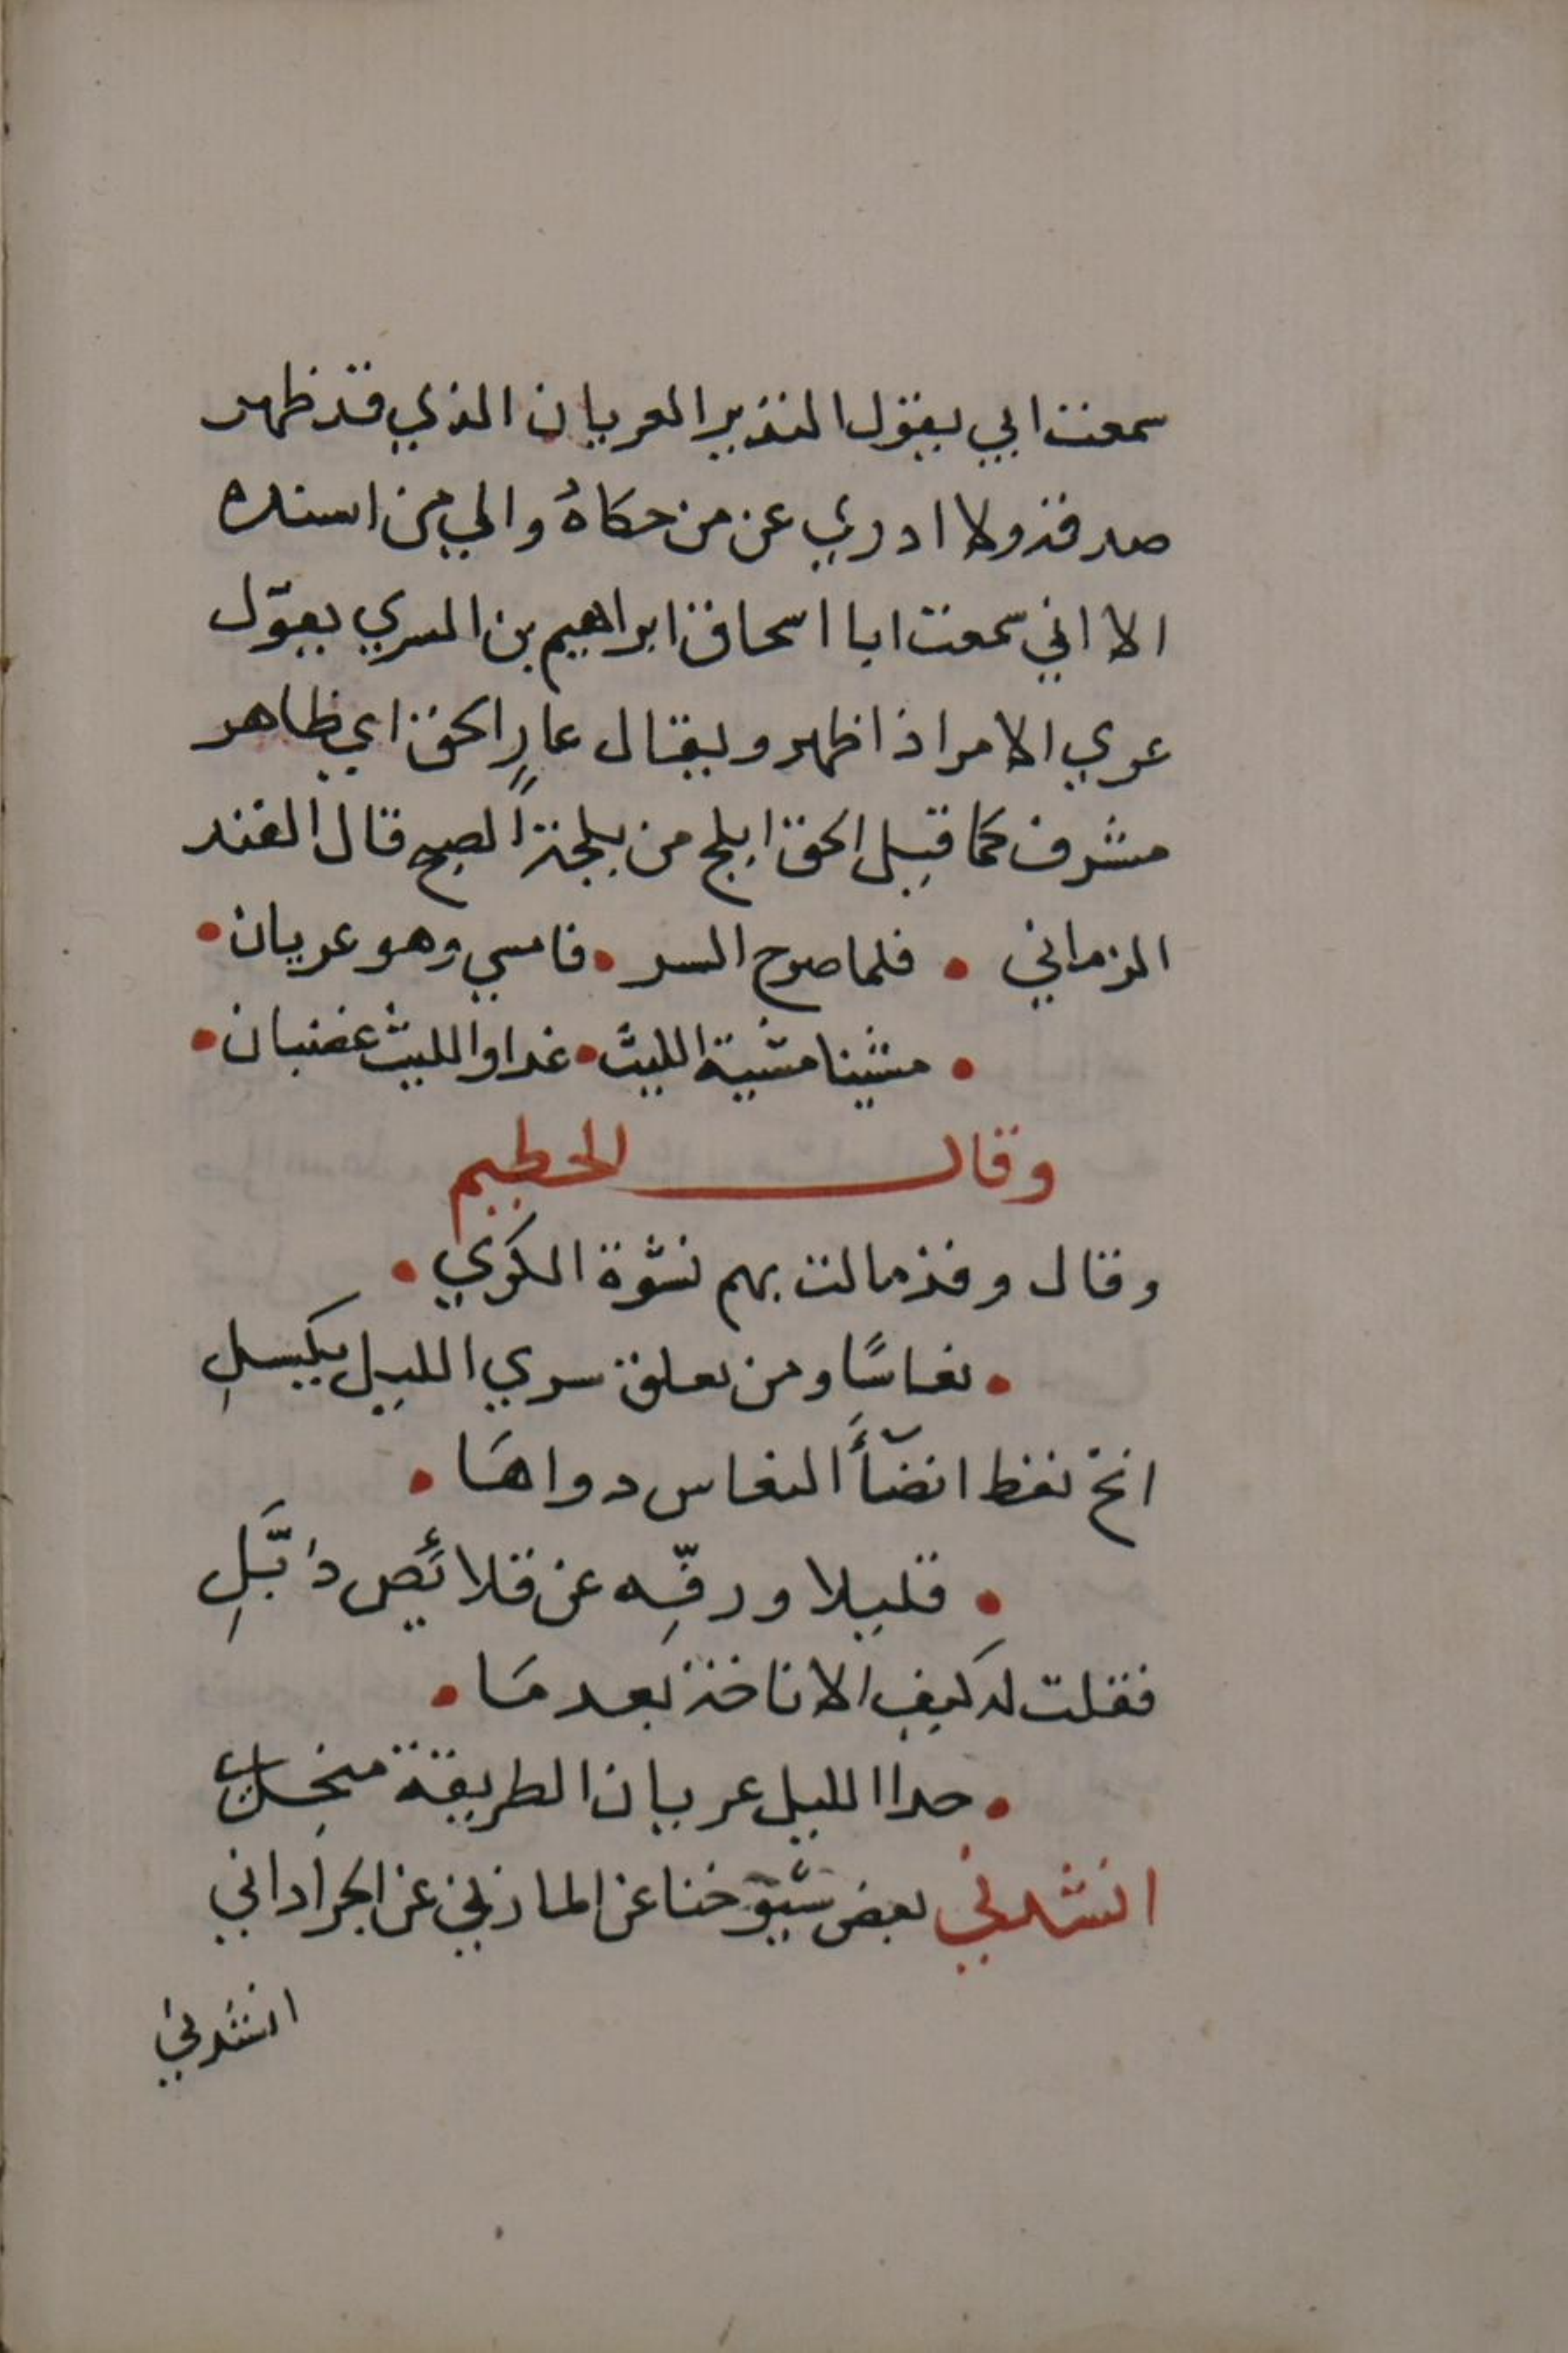 سمعت ابي يقول النذير العريان الذي قد ظهر
صدقه ولا ادري عن من حكاهُ والي من اسنده
الا اني سمعت ابا اسحاق ابراهيم بن السري يقول
عري الامر اذ اظهر ويقال عارٍ الحق اي ظاهر
مشرف كما قيل الحق ابلج من بلجة الصبح قال الفند
الزماني • فلما صرح السر • فامسي وهو عريان •
• مشينا مشية الليث • غدا والليث غضبان •
وقال الخطيم
وقال وقد مالت بهم نشوة الكري •
• نعاسًا ومن يعلق سري الليل يكسلِ
انخ نعط انضآءَ النعاس دواها •
• قليلا ورفّه عن قلائص ذبّلِ
فقلت له كيف الاناخة بعدما •
• حدا الليل عريان الطريقة منجلي
انشدني بعض شيوخنا عن المازني عن الجراداني
انشدني